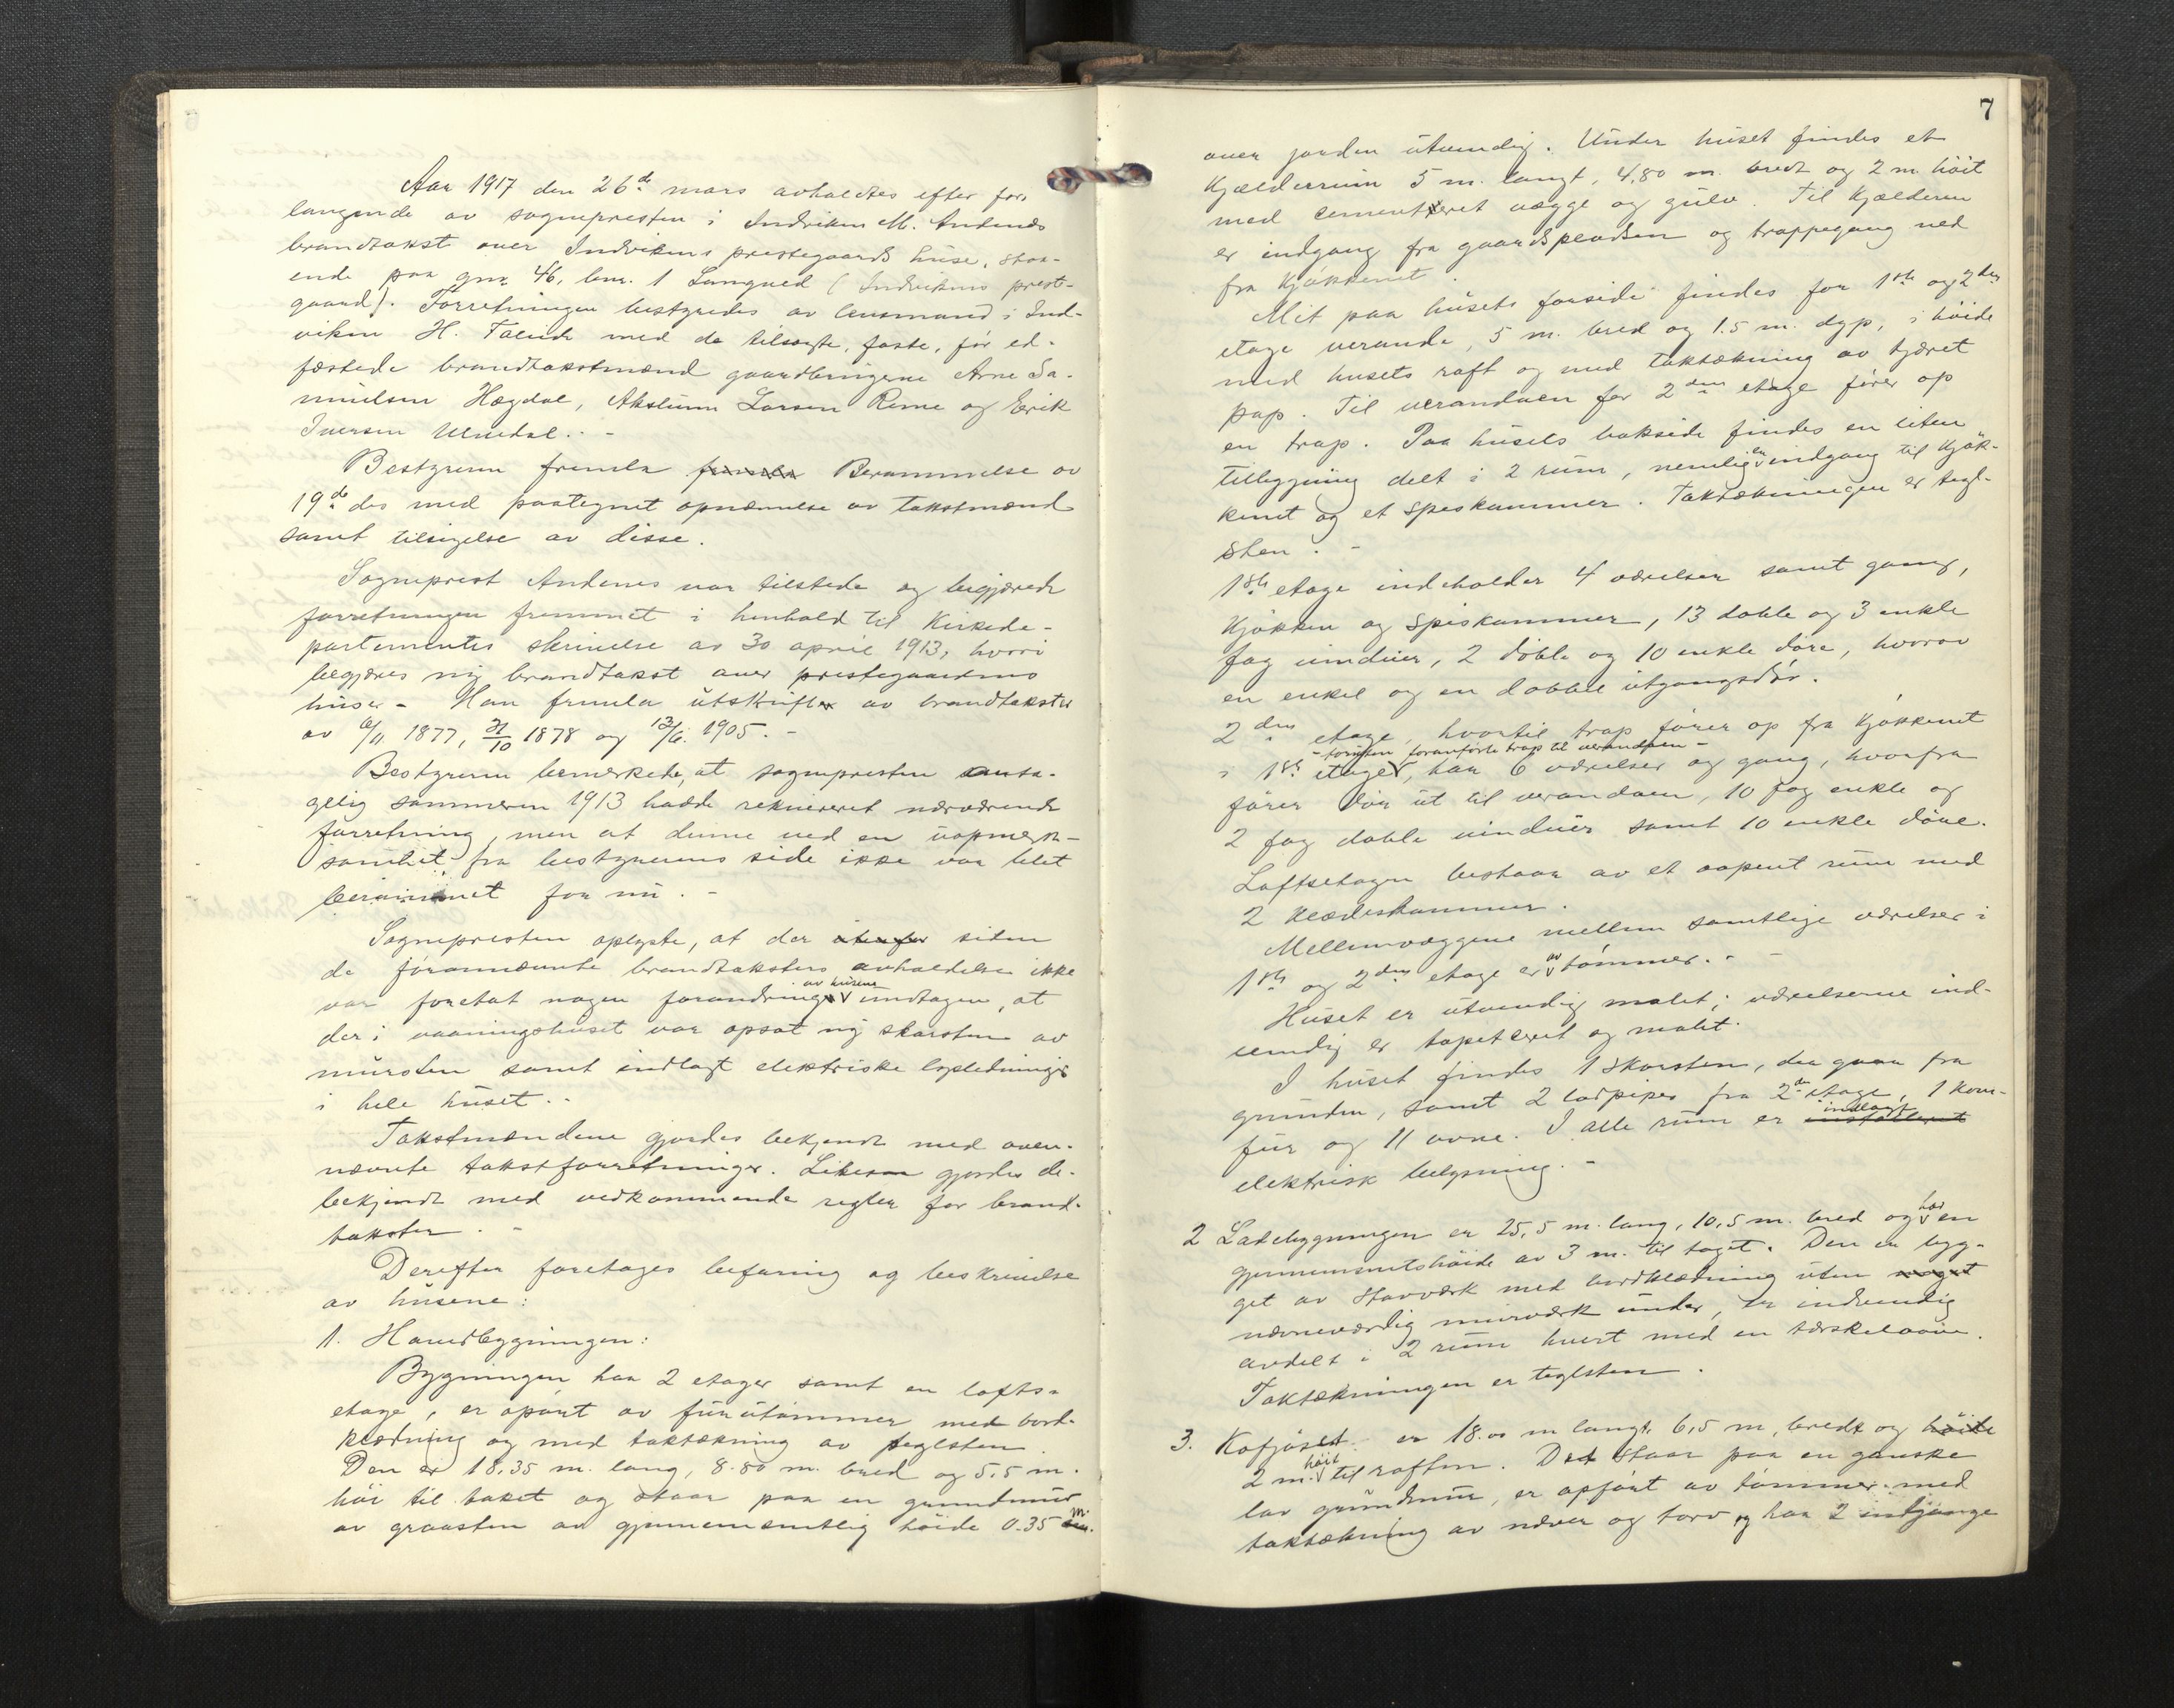 Aar 1917 den 26de mars avholdtes efter for-
langende av sognepresten i Indviken M. Andenæs
brandtakst over Indvikens prestegaards huse, staa-
ende paa gnr. 46, bnr. 1 (Indvikens prest-
gaard). Forretningen bestyredes av lensmand i Ind-
viken H. med de tilsagte, faste, før ed-
fæstede brandtakstmænd gaardbrugerne Arne Sa-
muelsen Hægdal, Larsen og Erik
Iversen
Bestyreren fremla fremla Berammelse av
19de ds med paategnet opnævnelse av takstmænd
samt tilsigelse av disse.
Sogneprest Andenes var tilstede og begjærede
forretningen fremmet i henhold til Kirkede-
partementets skrivelse av 30 april 1913, hvori
begjæres ny brandtakst over prestegaardens
huse. - Han fremla utskrifter av brandtakster
av 6/11 1877, 21/10 1878 og 13/6. 1905. -
Bestyreren bemerkede, at sognepresten anta-
gelig sommeren 1913 hadde rekvireret nærværende
forretning, men at denne ved en uopmerk-
somhet fra bestyrerens side ikke var blet
berammet før nu. -
Sognepresten oplyste, at der utenfor siden
deførannævnte brandtaksters avholdelse ikke
av husene
var foretat nogen forandring undtagen, at
der i vaaningshuset var opsat ny skorsten av
mursten samt indlagt elektriske lysledninger
i hele huset. -
Takstmændene gjordes bekjendt med oven-
nævnte takstforretninger. Likesaa gjordes de
bekjendt med vedkommende regler for brand-
takster. -
Derefter foretages befaring og beskrivelse
av husene:
1. Hovedbygningen:
Bygningen har 2 etager samt en lofts-
etage, er opført av furutømmer med bord-
klædning og med taktækning av teglsten.
Den er 18.35 m. lang, 8.80 m. bred og 5,5 m.
høi til taket og staar paa en grundmur
av graasten av gjennemsnitlig høide 0.35 m.
7
over jorden utvendig. Under huset findes et
Kjælderrum 5 m. langt, 4,80 m. bredt og 2 m. høit
med cementeret vægge og gulv. Til Kjælderen
er indgang fra gaardspladsen og trappegang ned
fra Kjøkkenet.
Mit paa husets forside findes for 1ste og 2den
etage veranda, 5 m. bred og 1.5 m. dyp, i høide
med husets raft og med taktækning av tjæret
pap. Til verandaen for 2den etage fører op
en trap. Paa husets bakside findes en liten
en
tilbygning delt i 2 rum, nemlig indgang til Kjøk-
kenet og et Speskammer. Taktækningen er tegl-
sten. -
1ste etage indeholder 4 værelser samt gang,
Kjøkken og Spiskammer, 13 doble og 3 enkle
fag vinduer, 2 doble og 10 enkle døre, hvorav
en enkel og en dobbel utgangsdør.
2den etage, hvortil trap fører op fra Kjøkkenet
- foruten foranførte trap til verandaen -
i 1ste etage, har 6 værelser og gang, hvorfra
fører dør ut til verandaen, 10 fag enkle og
2 fag doble vinduer samt 10 enkle døre.
Loftsetagen bestaar av et aapent rum med
2 klædeskammer.
Mellemvæggene mellem samtlige værelser i
av
1ste og 2den etage er tømmer. -
Huset er utvendig malet; værelserne ind-
vendig er tapetseret og malt.
I huset findes 1 Skorsten, der gaar fra
grunden, samt 2 fra 2de etage, 1 kom-
indlagt
fur og 11 ovne. I alle rum er installeret
elektrisk belysning. -
har
2 Ladebygningen er 25,5 m. lang, 10,5 m. bred og en
gjennemsnitshøide av 3 m. til taget. Den er byg-
get av Stavværk med bordklædning uten noget
nævneværdig murværk under, er indvendig
avdelt i 2 rum hvert med en tærskelaave.
Taktækningen er teglsten.
3. Kofjøset er 18.00 m langt, 6,5 m, bredt og høide
høit
2 m. til raften. Det staar paa en ganske
lav grundmur, er opført av tømmer med
taktækning av never og torv og har 2 indgange